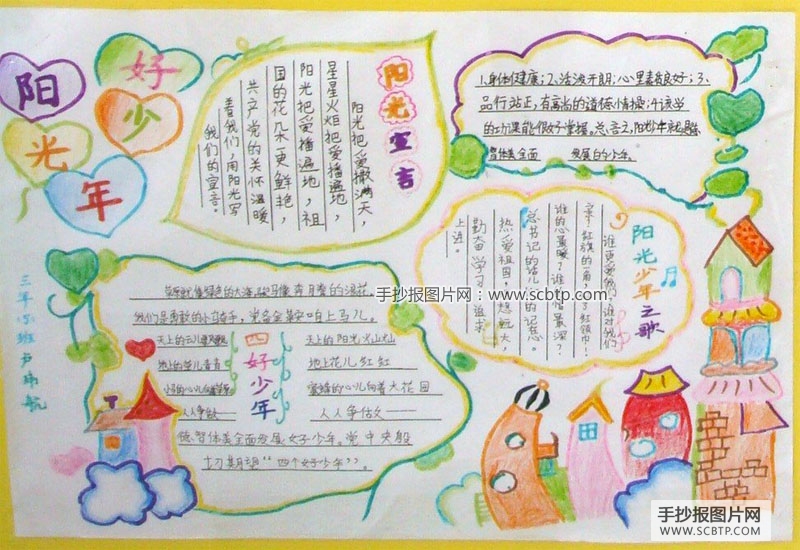 阳光
好少年
阳光宣言
阳光把爱撒满天，
星星火炬把爱播遍地，
阳光把爱播遍地，祖
国的花朵更鲜艳，
共产党的关怀温暖
着我们，用阳光写
我们的宣言。
1.身体健康；2、活泼开朗；心里素质良好；3、
品行站正，有高尚的道德情操；4.该学
的功课能很好掌握。总言之，阳光少年就是德
智体美全面 发展的少年。
阳光少年之歌
谁更爱我们，谁对我们
亲，红旗的一角，红领巾！
谁的心最暖？谁的情最深？
总书记的话儿 记在心。
热爱祖国， 想远大，
勤奋学习， 追求
上进。
手抄报图片网：www.scbtp.com
的大海，骏马像 的浪花
我们是勇敢的小 手， 上马儿。
四好少年
天上的云儿
地上的草儿青青
人人争做——
天上的阳光火灿灿
地上花儿红红
蜜蜂的心儿向着大花园
人人争做——
德智体美全面发展好少年。党中央殷
切期望“四个好少年”。
三年 班卢
手抄报图片网
WWW.SCBTP.COM